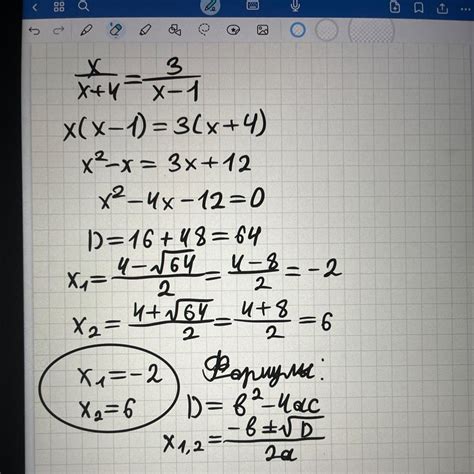 x/(x+4) = 3/(x-1)
x(x-1)=3(x+4)
x²-x = 3x+12
x²-4x-12=0
D=16+48=64
x₁=(4-√64)/2=(4-8)/2=-2
x₂=(4+√64)/2=(4+8)/2=6
x₁=-2
x₂=6
Формулы:
D=b²-4ac
x₁,₂=(-b±√D)/2a